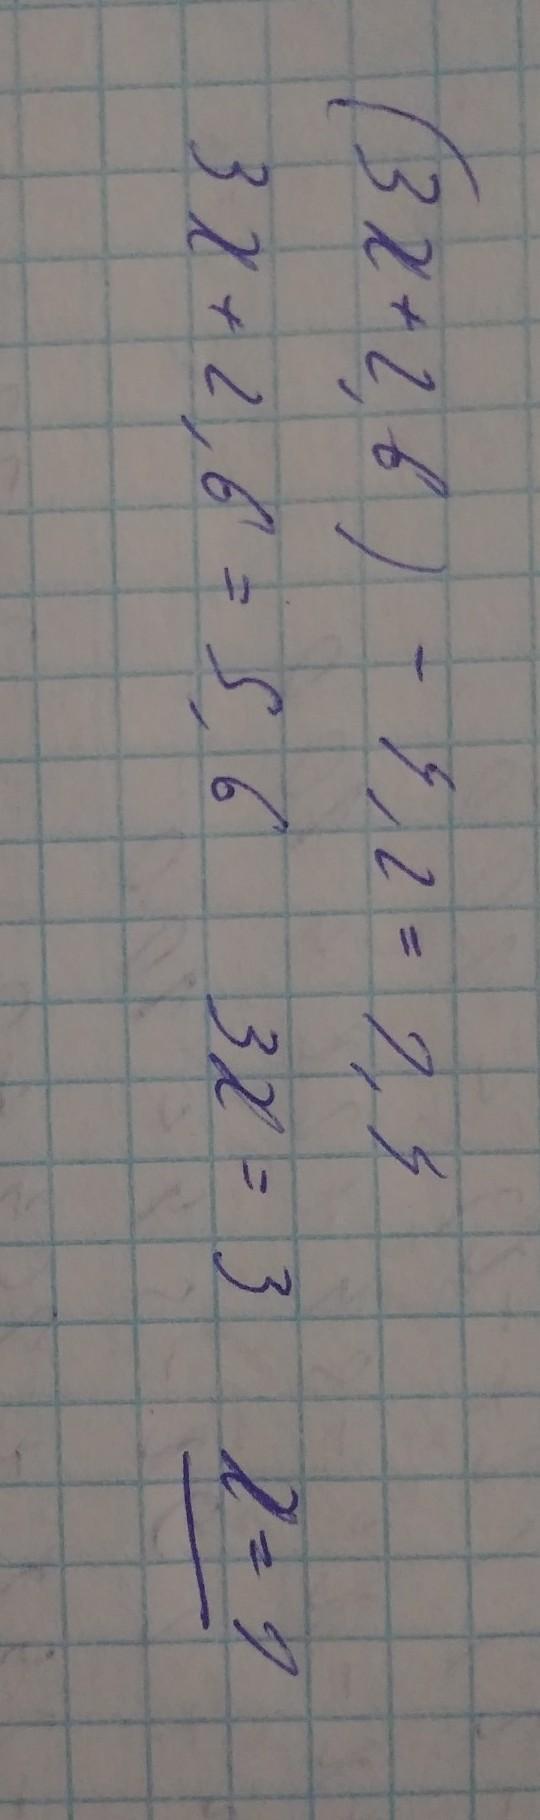 (3x+2,6) - 4,2 = 1,4
3x+2,6 = 5,6 3x = 3 x = 1